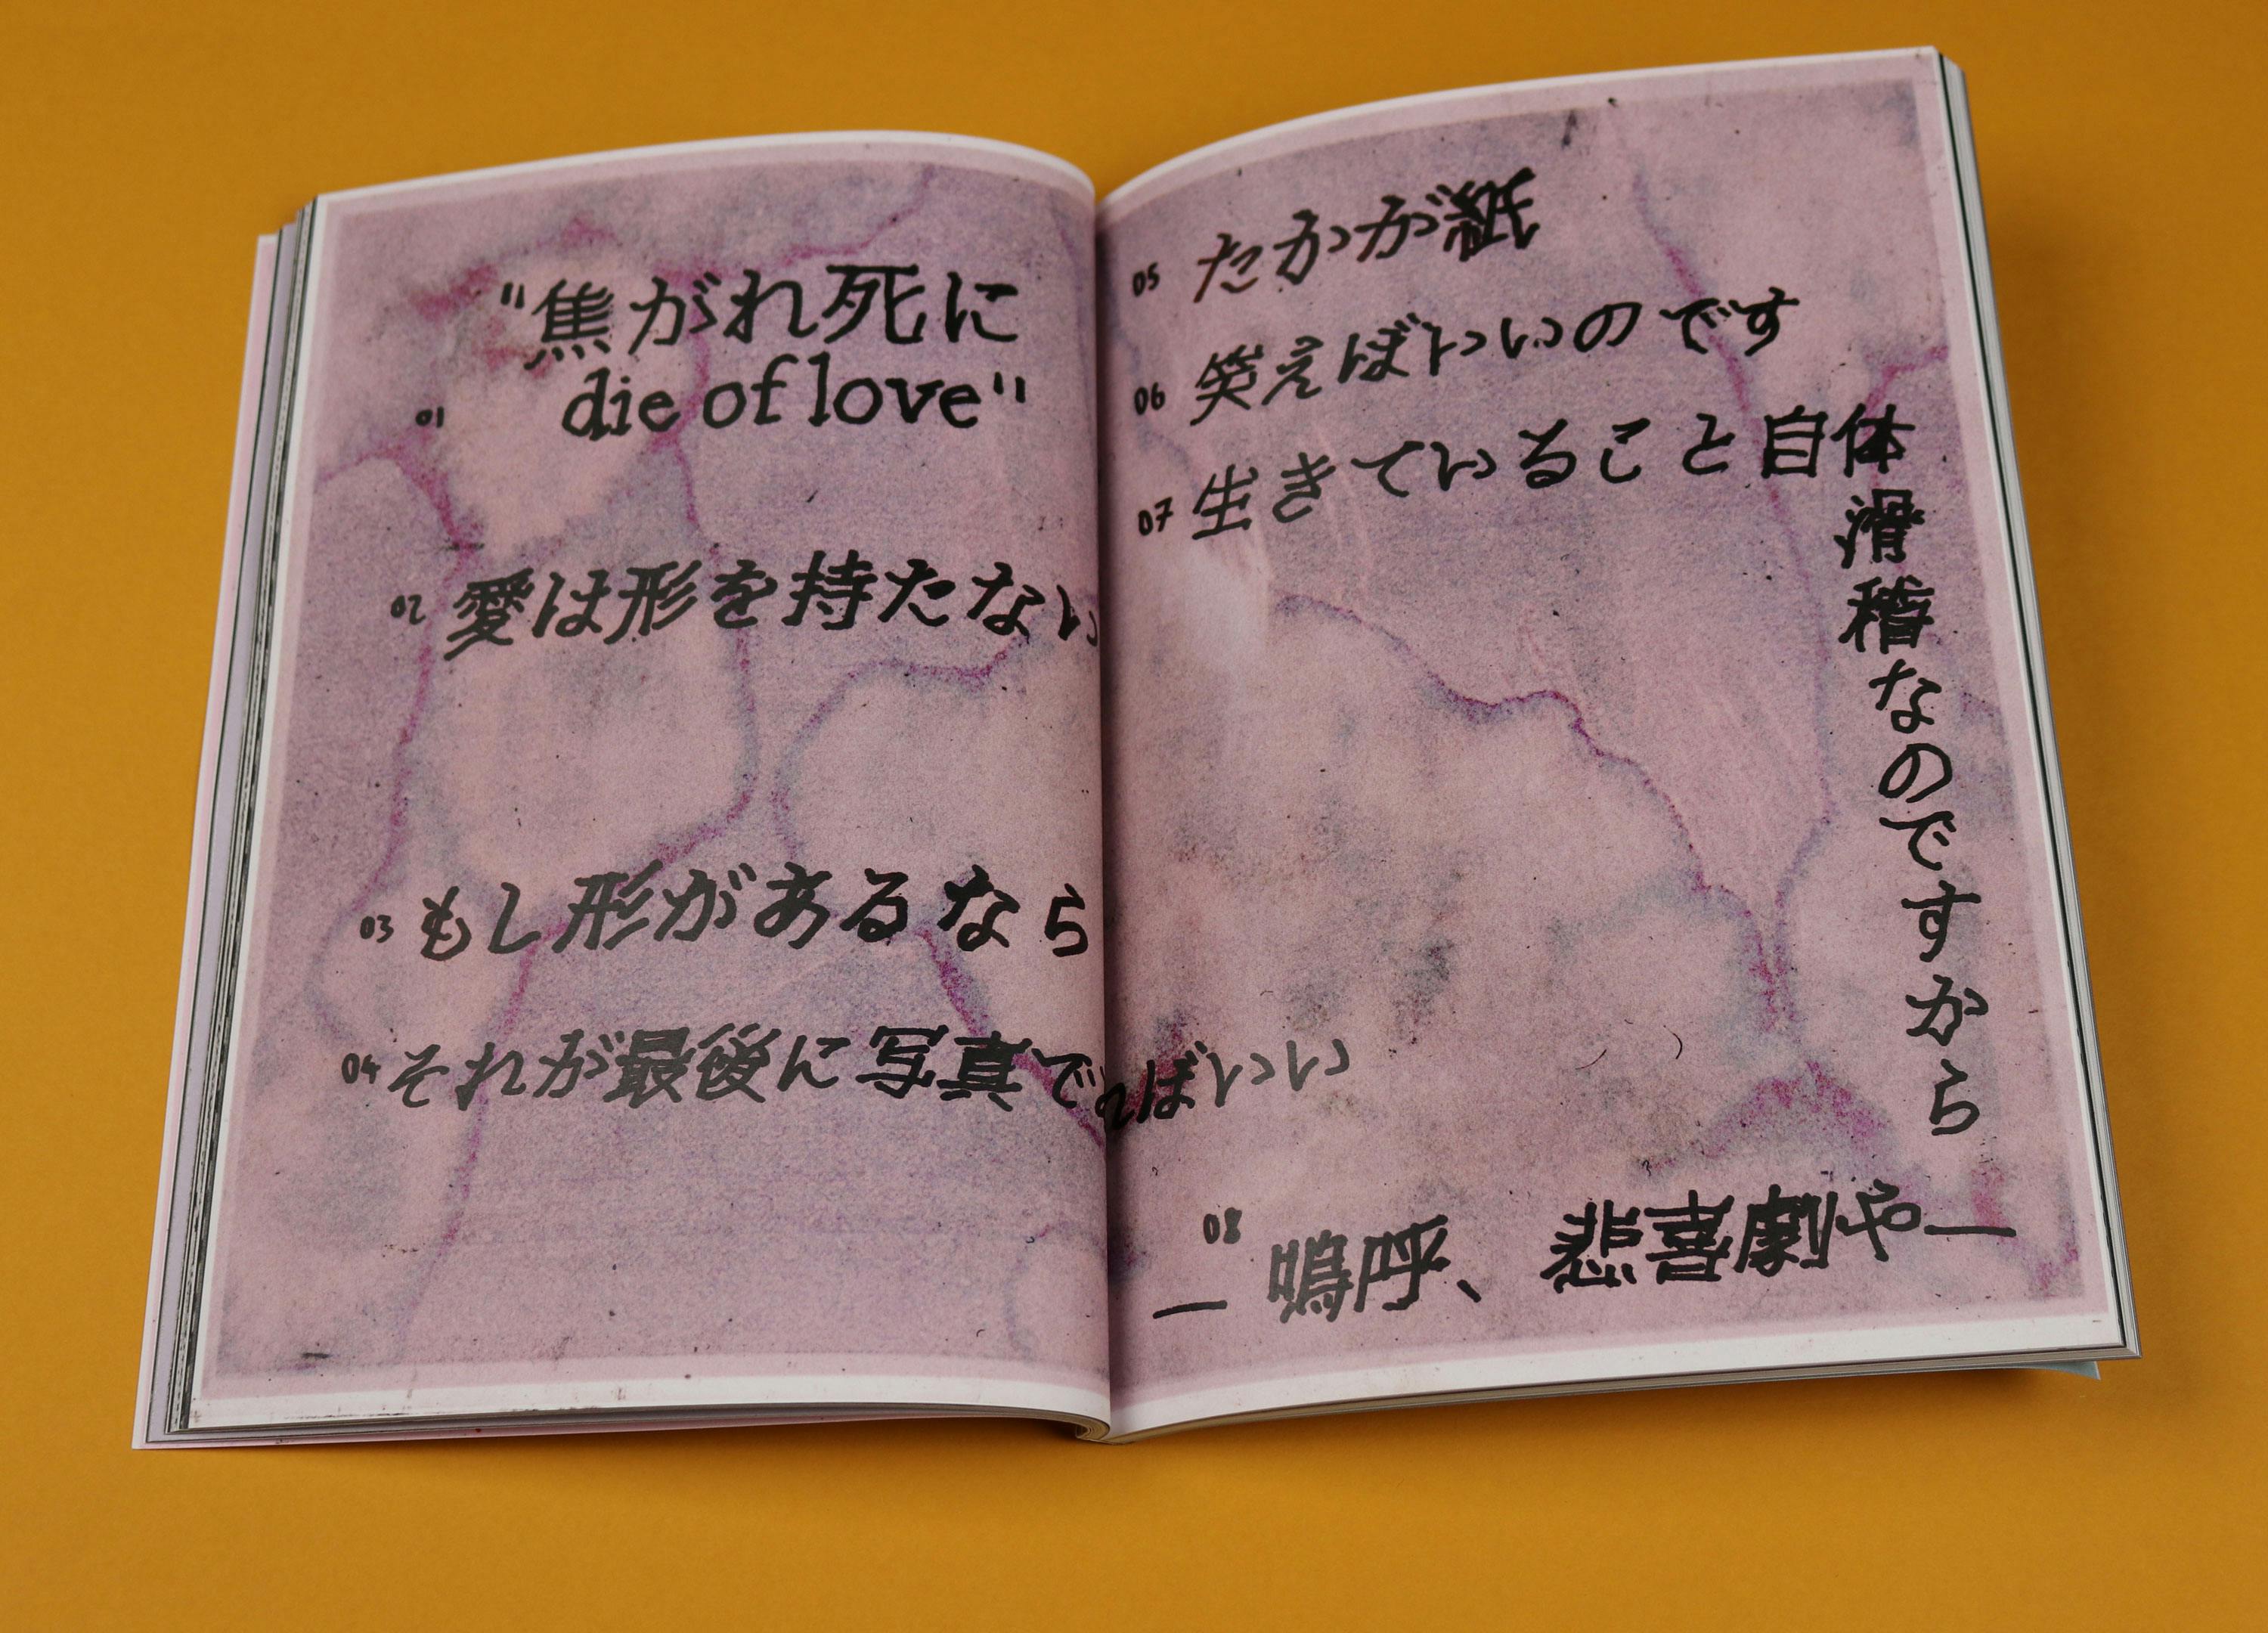 "焦がれ死に
01 die of love"
02 愛は形を持たない
03 もし形があるなら
04 それが最後に写真で ればいい
05 たかが紙
06 笑えばいいのです
07 生きていること自体
滑稽なのですから
08
— 嗚呼、悲喜劇や —